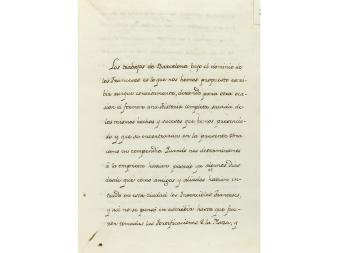 Los trabajos de Barcelona bajo el dominio de
los Franceses es lo que nos hemos propuesto escri-
bir aunque concisamente, dexando para otra oca-
sion el formar una historia completa sacada de
los mismos hechos y sucesos que hemos presencia-
do y que se encontraran en la presente Obra
como en compendio. Quando nos determinamos
à la empresa havian pasado ya algunos dias
desde que como amigos y aliados havian en-
trado en esta ciudad los Invencibles Franceses,
y asi no se pensó en escribir hasta que fue-
ron tomadas las Fortificaciones de la Plaza, y